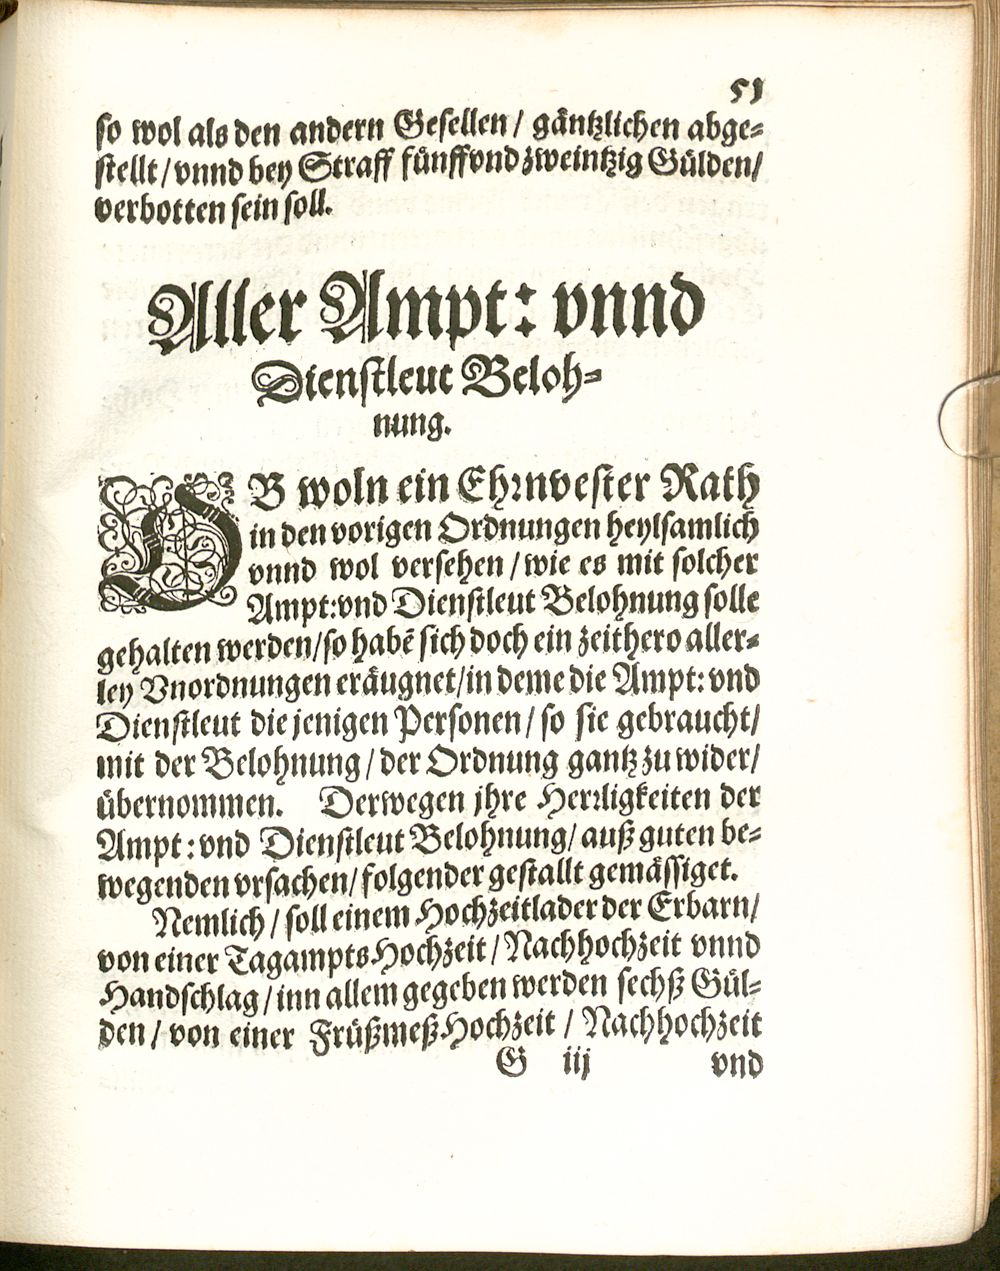 53
so wol als den andern Gesellen / gäntzlichen abge-
stellt / vnnd bey Straff fünffvnd zweintzig Gülden /
verbotten sein soll.
Aller Ampt: vnnd
Dienstleut Beloh-
nung.
OB woln ein Ehrnvester Rath
in den vorigen Ordnungen heylsamlich
vnnd wol versehen / wie es mit solcher
Ampt: vnd Dienstleut Belohnung solle
gehalten werden / so habē sich doch ein zeithero aller-
ley Vnordnungen eräugnet / in deme die Ampt: vnd
Dienstleut die jenigen Personen / so sie gebraucht /
mit der Belohnung / der Ordnung gantz zu wider /
übernommen. Derwegen jhre Herrligkeiten der
Ampt: vnd Dienstleut Belohnung / auß guten be-
wegenden vrsachen / folgender gestallt gemässiget.
Nemlich / soll einem Hochzeitlader der Erbarn /
von einer Tagampts Hochzeit / Nachhochzeit vnnd
Handschlag / inn allem gegeben werden sechß Gül-
den / von einer Früßmeß Hochzeit / Nachhochzeit
G iij vnd